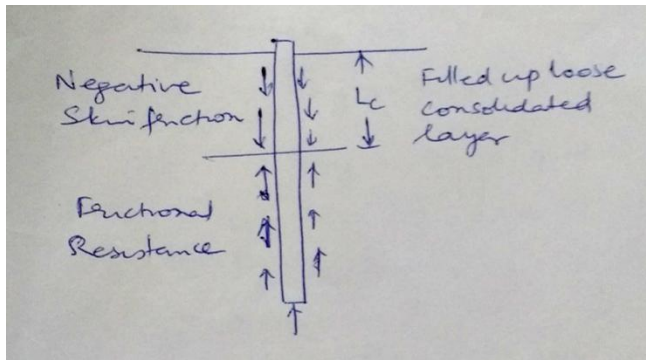 Negative
Skin friction
Lc
Filled up loose
consolidated
layer
Frictional
Resistance